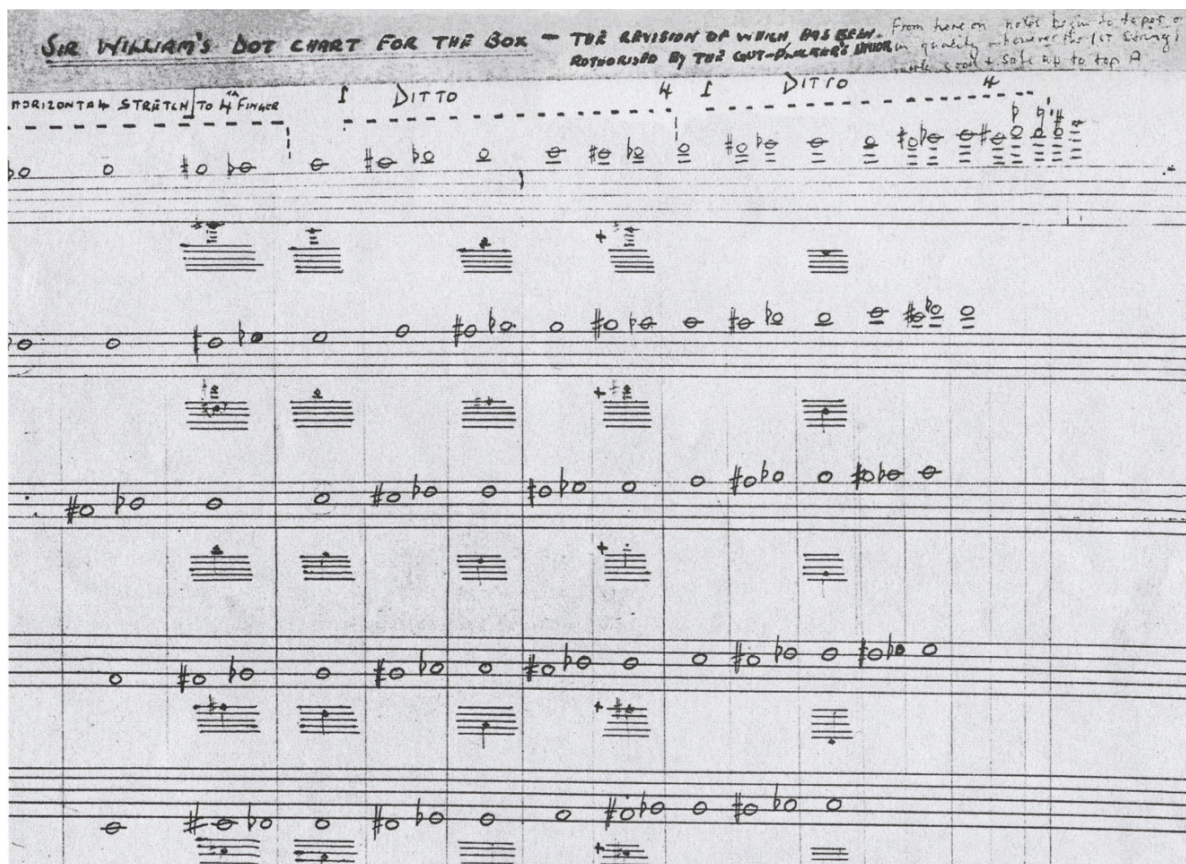 SIR WILLIAM'S DOT CHART FOR THE BOX — THE REVISION OF WHICH HAS BEEN
AUTHORISED BY THE GUT-PLUCKER'S UNION
From here on notes begin to taper
in quality whereas the 1st string
good & safe up to top A
HORIZONTAL STRETCH TO 4TH FINGER
1 DITTO 4 1 DITTO 4